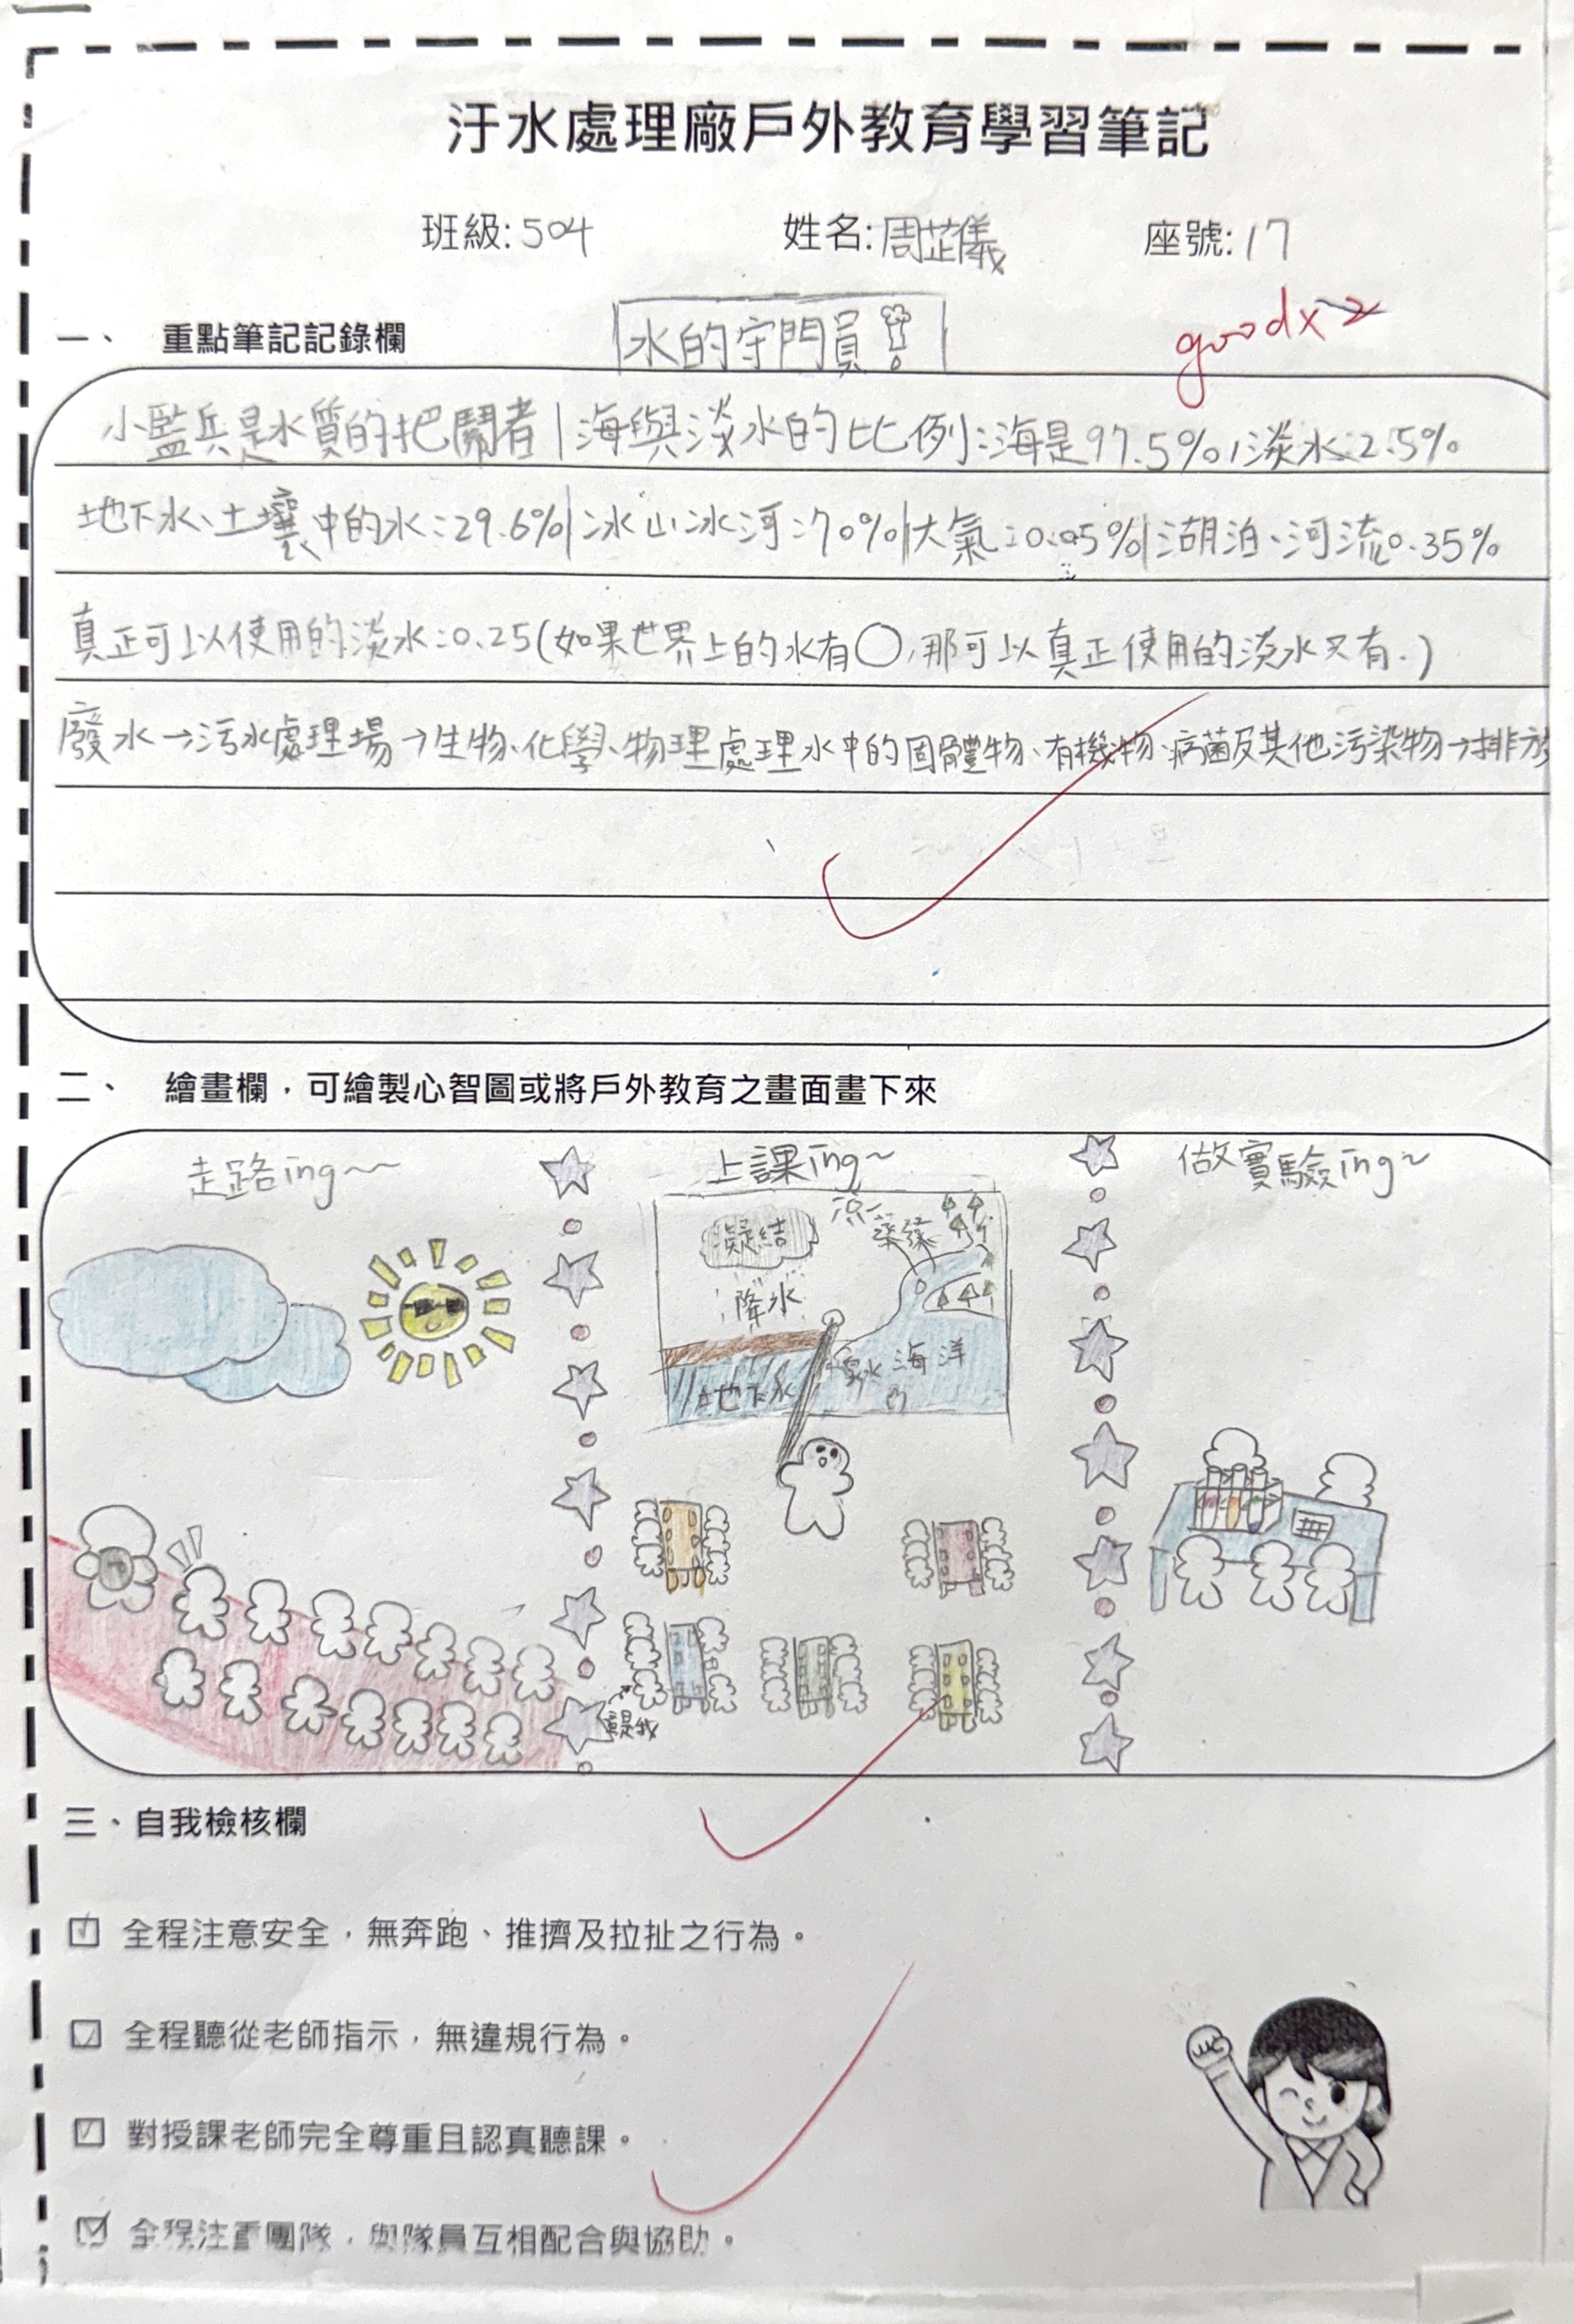 汙水處理廠戶外教育學習筆記
班級:504 姓名:周芷儀 座號:17
一、 重點筆記記錄欄 水的守門員 goodx2
小監兵是水質的把關者|海與淡水的比例:海是97.5%,淡水:2.5%
地下水、土壤中的水:29.6%|冰山冰河:70%|大氣:0.05%|湖泊、河流0.35%
真正可以使用的淡水:0.25(如果世界上的水有○,那可以真正使用的淡水又有.)
廢水→污水處理場→生物、化學、物理處理水中的固體物、有機物、病菌及其他污染物→排放
二、 繪畫欄,可繪製心智圖或將戶外教育之畫面畫下來
走路ing~~ 上課ing~ 做實驗ing~
凝結
降水
海洋
地下水
是我
三、自我檢核欄
全程注意安全,無奔跑、推擠及拉扯之行為。
全程聽從老師指示,無違規行為。
對授課老師完全尊重且認真聽課。
全程注重團隊,與隊員互相配合與協助。